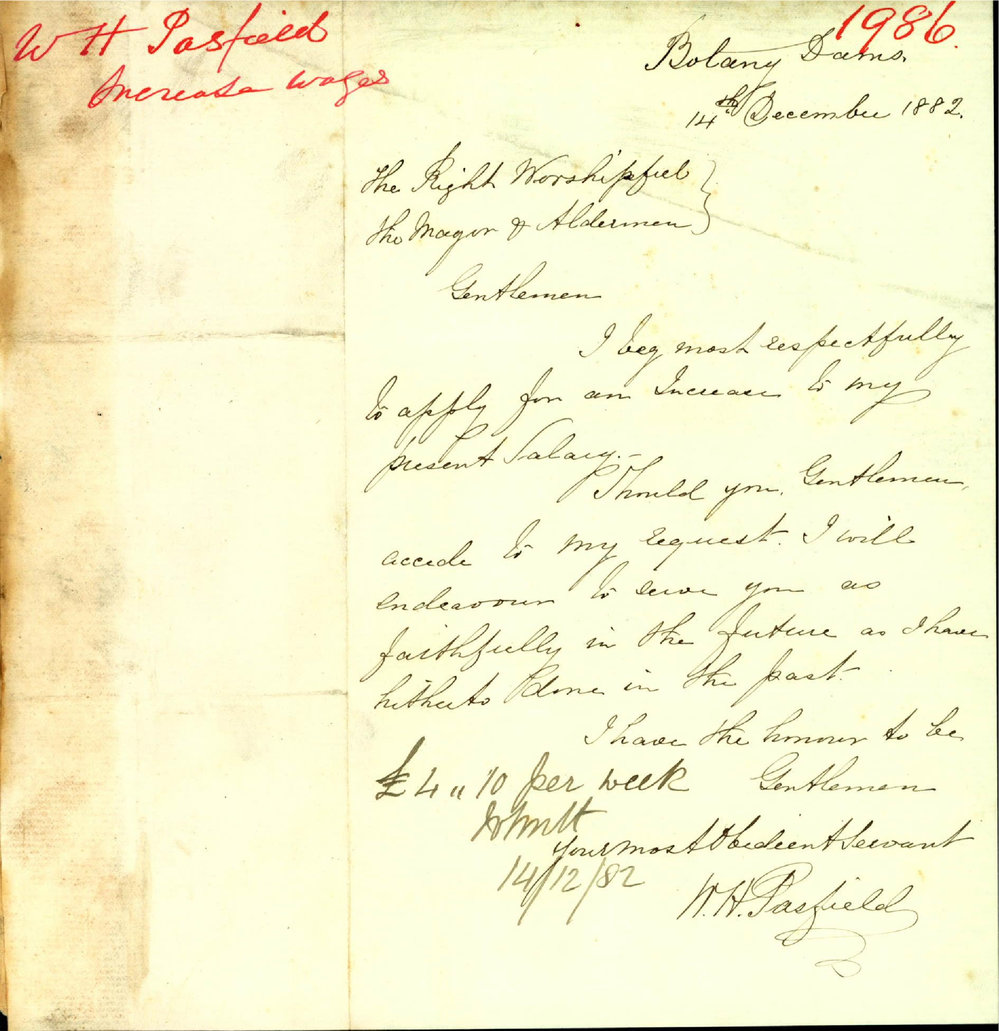 W H Pasfield
Increase wages
1986.
Botany Dams.
14th December 1882.
The Right Worshipful
the Mayor & Aldermen
Gentlemen
I beg most respectfully
to apply for an Increase to my
present Salary.-
Should you, Gentlemen,
accede to my request. I will
endeavour to serve you as
faithfully in the future as I have
hitherto done in the past.
I have the honour to be
£4 " 10 per week
Gentlemen
Your most Obedient Servant
14/12/82
W. H. Pasfield